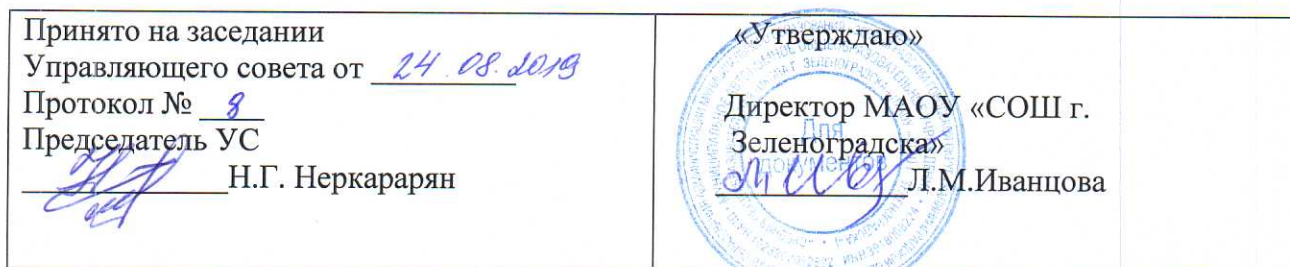 Принято на заседании
Управляющего совета от 24.08.2019
Протокол № 8
Председатель УС
Н.Г. Неркарарян
«Утверждаю»
Директор МАОУ «СОШ г.
Зеленоградска»
Л.М.Иванцова
Для
документов